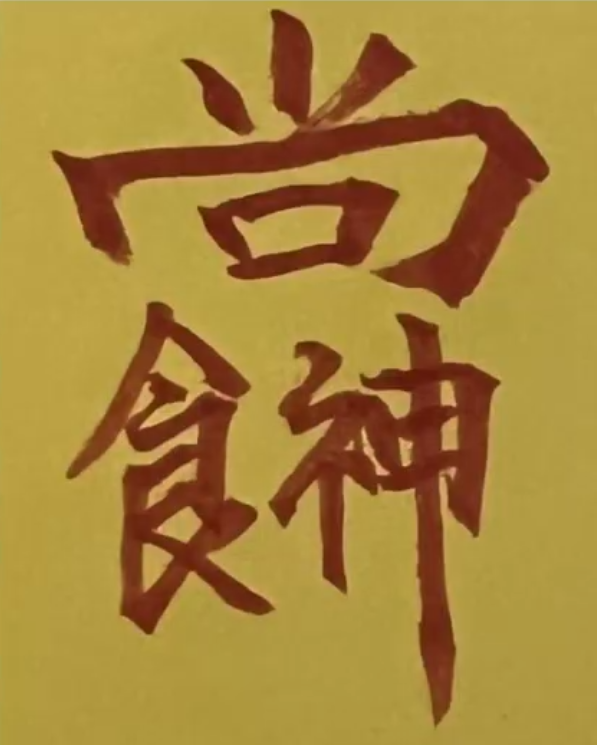 尚
食神